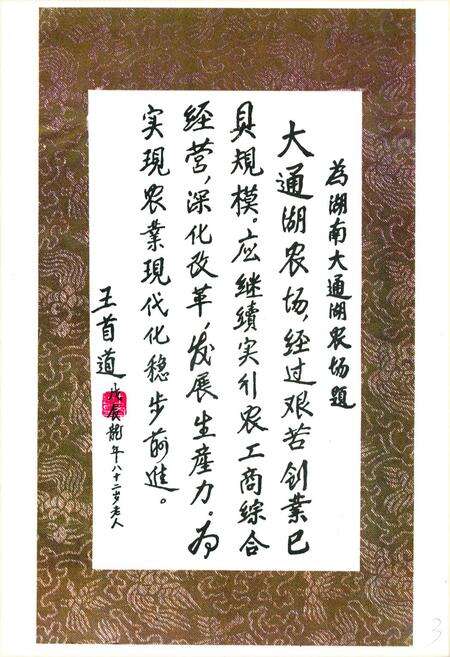 为湖南大通湖农场題
大通湖农场，经过艰苦创業已
具规模。应继續实行农工商綜合
经营，深化改革，发展生産力。为
实現农業現代化稳步前進。
王首道
戊辰龍年八十二岁老人
3